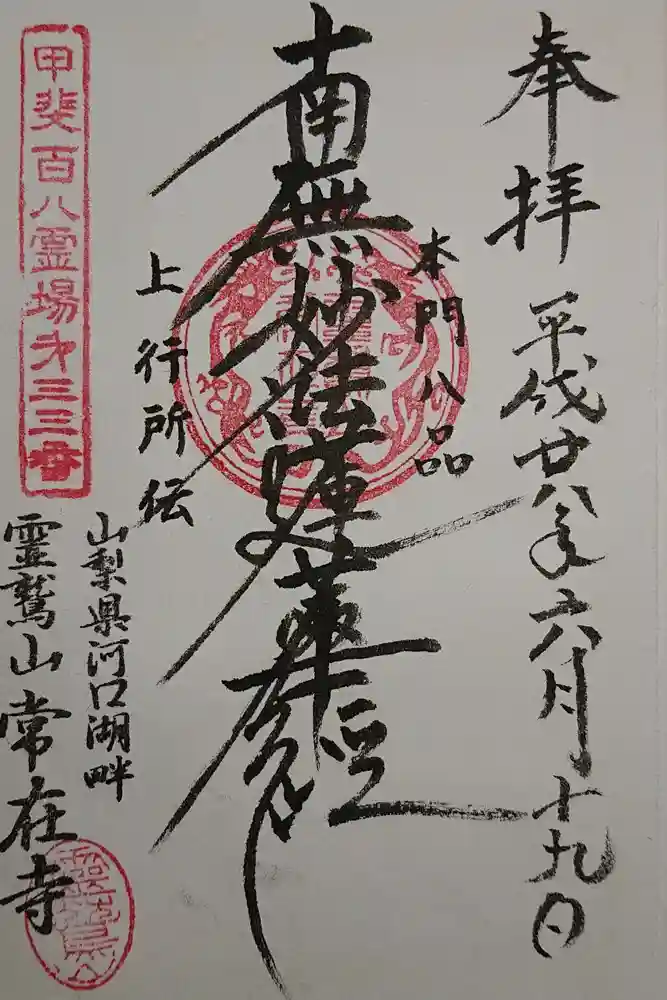 奉拝
平成廿八年六月十九日
本門八品
南無妙法蓮華経
上行所伝
甲斐百八霊場第三三番
山梨県河口湖畔
霊鷲山常在寺